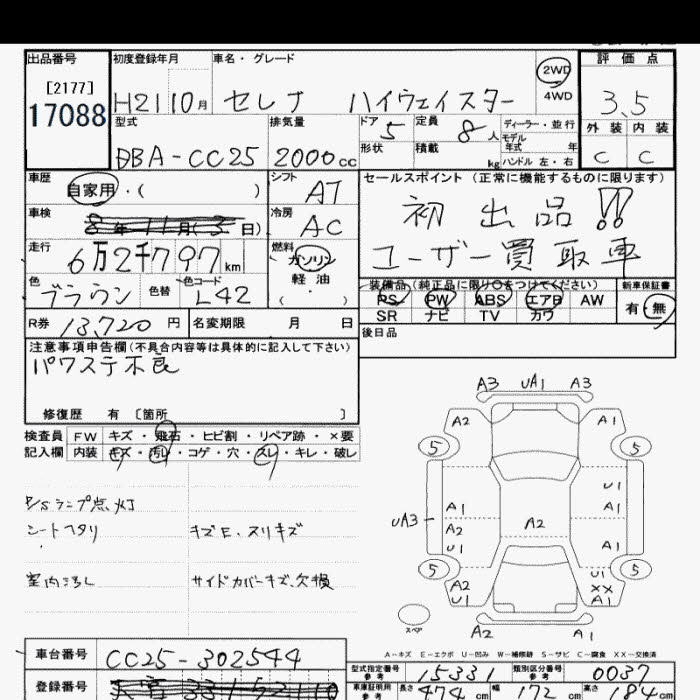 出品番号
[2177]
17088
初度登録年月
H21 10月
車名・グレード
セレナ ハイウェイスター
2WD
4WD
評価点
3.5
外装 内装
C C
型式
DBA-CC25
排気量
2000cc
ドア
5
形状
定員
8人
積載
kg
ディーラー・並行
モデル
年式 年
ハンドル 左・右
車歴
自家用・( )
シフト
AT
車検
8年11月(3日)
冷房
AC
走行
6万2千797km
燃料
ガソリン
軽油
( ・ )
色
ブラウン
色替
色コード
L42
セールスポイント (正常に機能するものに限ります)
初出品!!
ユーザー買取車
装備品(純正品に限り○をつけてください)
PS PW ABS エアB AW
SR ナビ TV カワ
新車保証書
有・無
R券 13,720円
名変期限 月 日
後日品
注意事項申告欄(不具合内容等は具体的に記入して下さい)
パワステ不良
修復歴 有 〔箇所 〕
検査員
記入欄
FW キズ・飛石・ヒビ割・リペア跡・×要
内装 キズ・汚レ・コゲ・穴・スレ・キレ・破レ
P/Sランプ点灯
シートヘタリ
キズE、スリキズ
室内汚レ
サイドカバーキズ、欠損
A3 UA1 A3
A2 A1
5 5
U1
A1 A1
UA3
A2 A2
U1 A1
5 5
U1
A2 XX
U1 A1
スペア
A2 A1
A-キズ E-エクボ U-凹み W-補修跡 S-サビ C-腐食 XX-交換済
車台番号
CC25-302544
登録番号
型式指定番号
参考
15331
類別区分番号
参考
0037
車車証明用
参考
長さ 474cm
幅 172cm
高さ 184cm